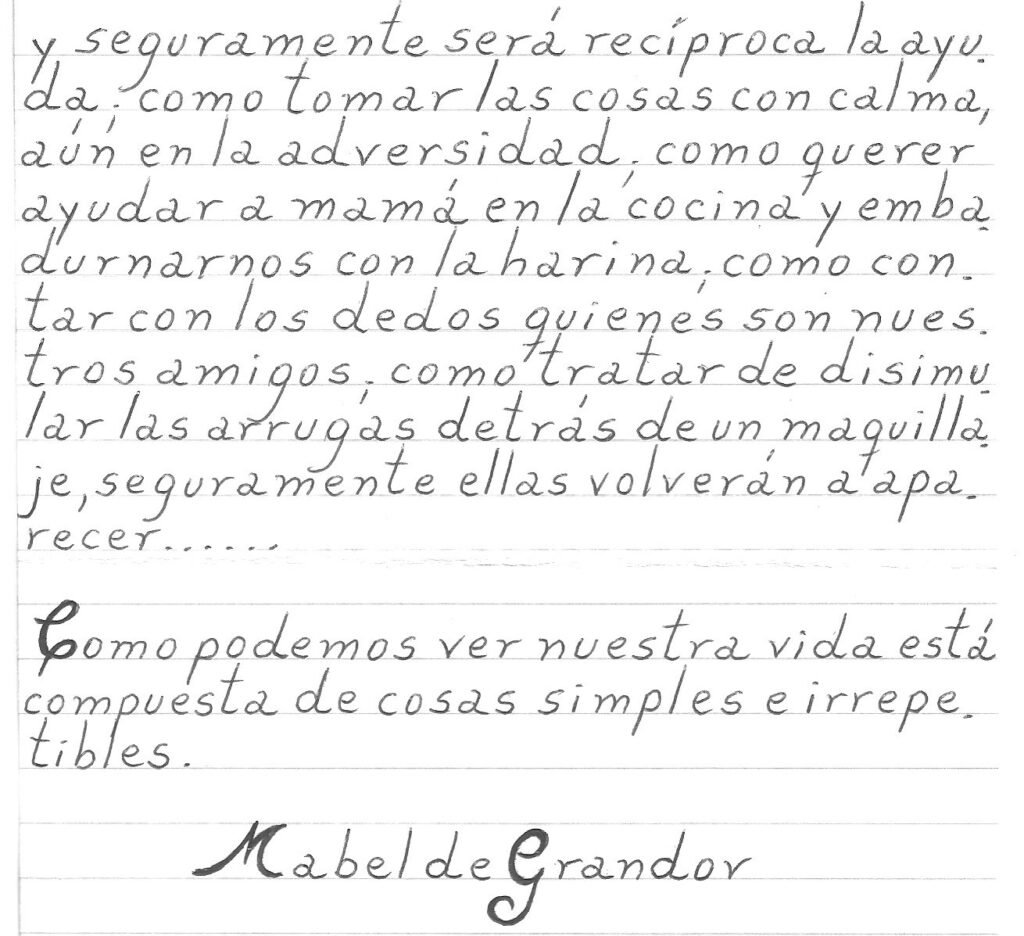 y seguramente será recíproca la ayu.
da; como tomar las cosas con calma,
aún en la adversidad; como querer
ayudar a mamá en la cocina y emba.
durnarnos con la harina; como con.
tar con los dedos quienes son nues.
tros amigos; como tratar de disimu.
lar las arrugas detrás de un maquilla.
je, seguramente ellas volverán a apa.
recer......
Como podemos ver nuestra vida está
compuesta de cosas simples e irrepe.
tibles.
Mabel de Grandov